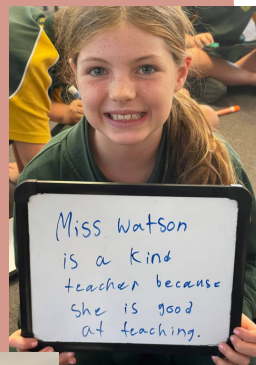 Miss Watson
is a kind
teacher because
she is good
at teaching.